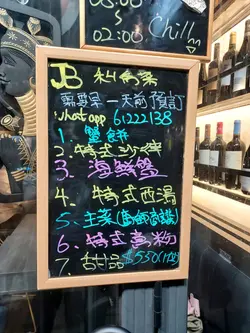 03:00
~
02:00
Chilln
JB 私房菜
需要早一天前預訂
what app 61222138
1 蟹餅
2. 特式沙律
3. 海鮮盤
4. 特式西湯
5. 主菜
6. 特式意粉
7. 甜品 $550